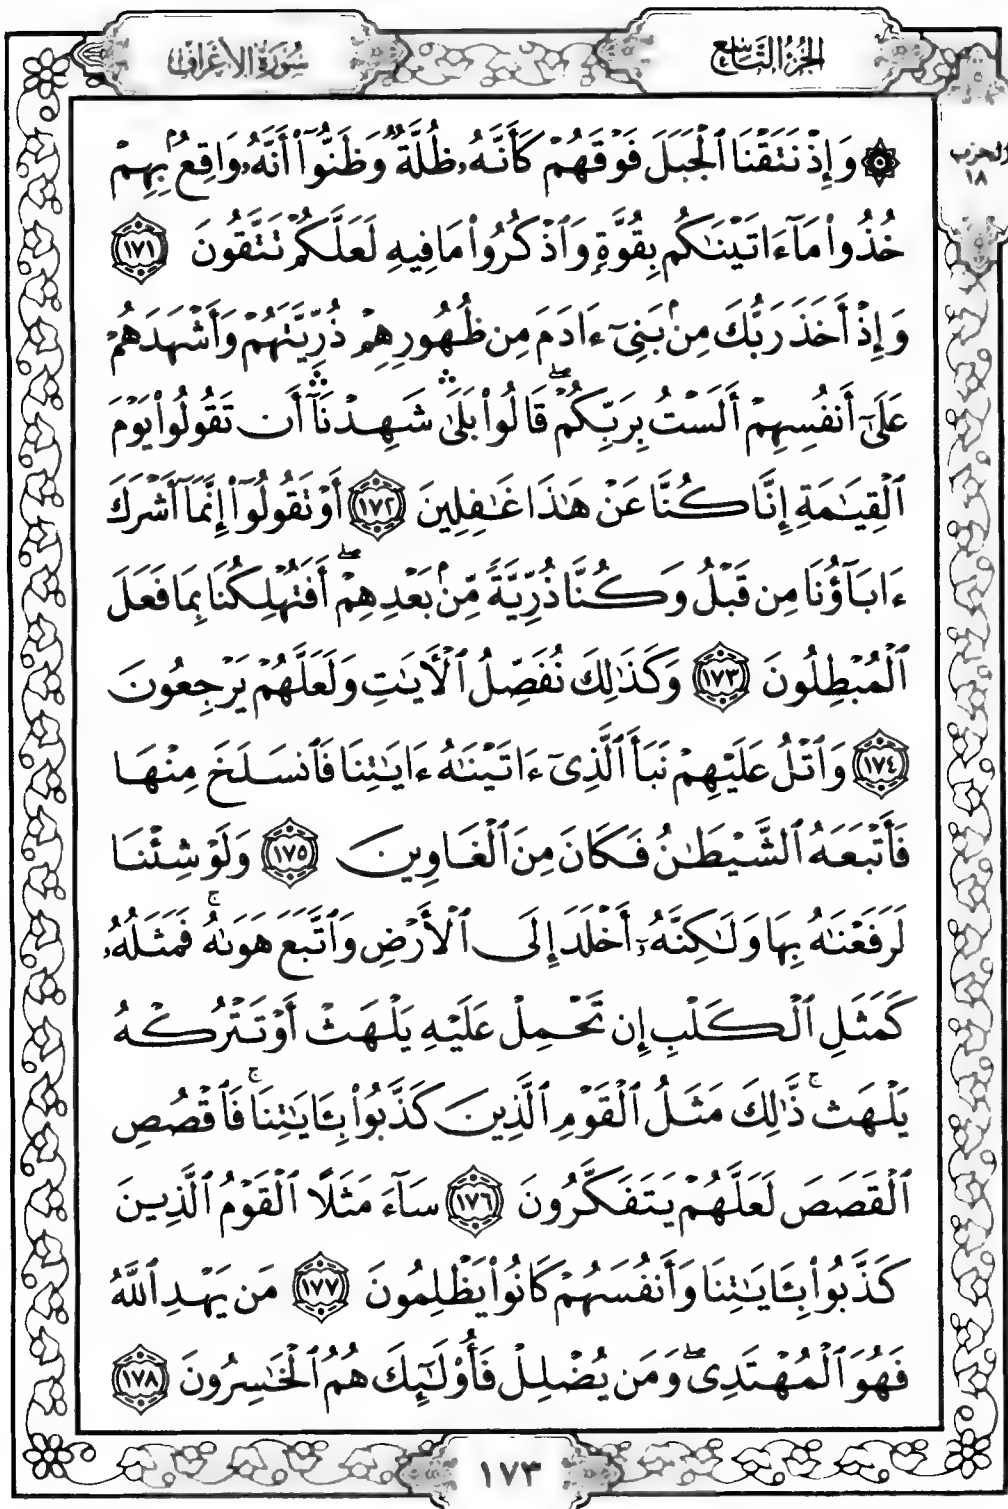 الجزء التاسع
سورة الأعراف
الحزب
١٨
۞ وَإِذْ نَتَقْنَا ٱلْجَبَلَ فَوْقَهُمْ كَأَنَّهُۥ ظُلَّةٌ وَظَنُّوٓا۟ أَنَّهُۥ وَاقِعٌۢ بِهِمْ
خُذُوا۟ مَآ ءَاتَيْنَـٰكُم بِقُوَّةٍ وَٱذْكُرُوا۟ مَا فِيهِ لَعَلَّكُمْ تَتَّقُونَ ١٧١
وَإِذْ أَخَذَ رَبُّكَ مِنۢ بَنِىٓ ءَادَمَ مِن ظُهُورِهِمْ ذُرِّيَّتَهُمْ وَأَشْهَدَهُمْ
عَلَىٰٓ أَنفُسِهِمْ أَلَسْتُ بِرَبِّكُمْ ۖ قَالُوا۟ بَلَىٰ ۛ شَهِدْنَآ ۛ أَن تَقُولُوا۟ يَوْمَ
ٱلْقِيَـٰمَةِ إِنَّا كُنَّا عَنْ هَـٰذَا غَـٰفِلِينَ ١٧٢ أَوْ تَقُولُوٓا۟ إِنَّمَآ أَشْرَكَ
ءَابَآؤُنَا مِن قَبْلُ وَكُنَّا ذُرِّيَّةً مِّنۢ بَعْدِهِمْ ۖ أَفَتُهْلِكُنَا بِمَا فَعَلَ
ٱلْمُبْطِلُونَ ١٧٣ وَكَذَٰلِكَ نُفَصِّلُ ٱلْـَٔايَـٰتِ وَلَعَلَّهُمْ يَرْجِعُونَ
١٧٤ وَٱتْلُ عَلَيْهِمْ نَبَأَ ٱلَّذِىٓ ءَاتَيْنَـٰهُ ءَايَـٰتِنَا فَٱنسَلَخَ مِنْهَا
فَأَتْبَعَهُ ٱلشَّيْطَـٰنُ فَكَانَ مِنَ ٱلْغَاوِينَ ١٧٥ وَلَوْ شِئْنَا
لَرَفَعْنَـٰهُ بِهَا وَلَـٰكِنَّهُۥٓ أَخْلَدَ إِلَى ٱلْأَرْضِ وَٱتَّبَعَ هَوَىٰهُ ۚ فَمَثَلُهُۥ
كَمَثَلِ ٱلْكَلْبِ إِن تَحْمِلْ عَلَيْهِ يَلْهَثْ أَوْ تَتْرُكْهُ
يَلْهَث ۚ ذَّٰلِكَ مَثَلُ ٱلْقَوْمِ ٱلَّذِينَ كَذَّبُوا۟ بِـَٔايَـٰتِنَا ۚ فَٱقْصُصِ
ٱلْقَصَصَ لَعَلَّهُمْ يَتَفَكَّرُونَ ١٧٦ سَآءَ مَثَلًا ٱلْقَوْمُ ٱلَّذِينَ
كَذَّبُوا۟ بِـَٔايَـٰتِنَا وَأَنفُسَهُمْ كَانُوا۟ يَظْلِمُونَ ١٧٧ مَن يَهْدِ ٱللَّهُ
فَهُوَ ٱلْمُهْتَدِى ۖ وَمَن يُضْلِلْ فَأُو۟لَـٰٓئِكَ هُمُ ٱلْخَـٰسِرُونَ ١٧٨
١٧٣